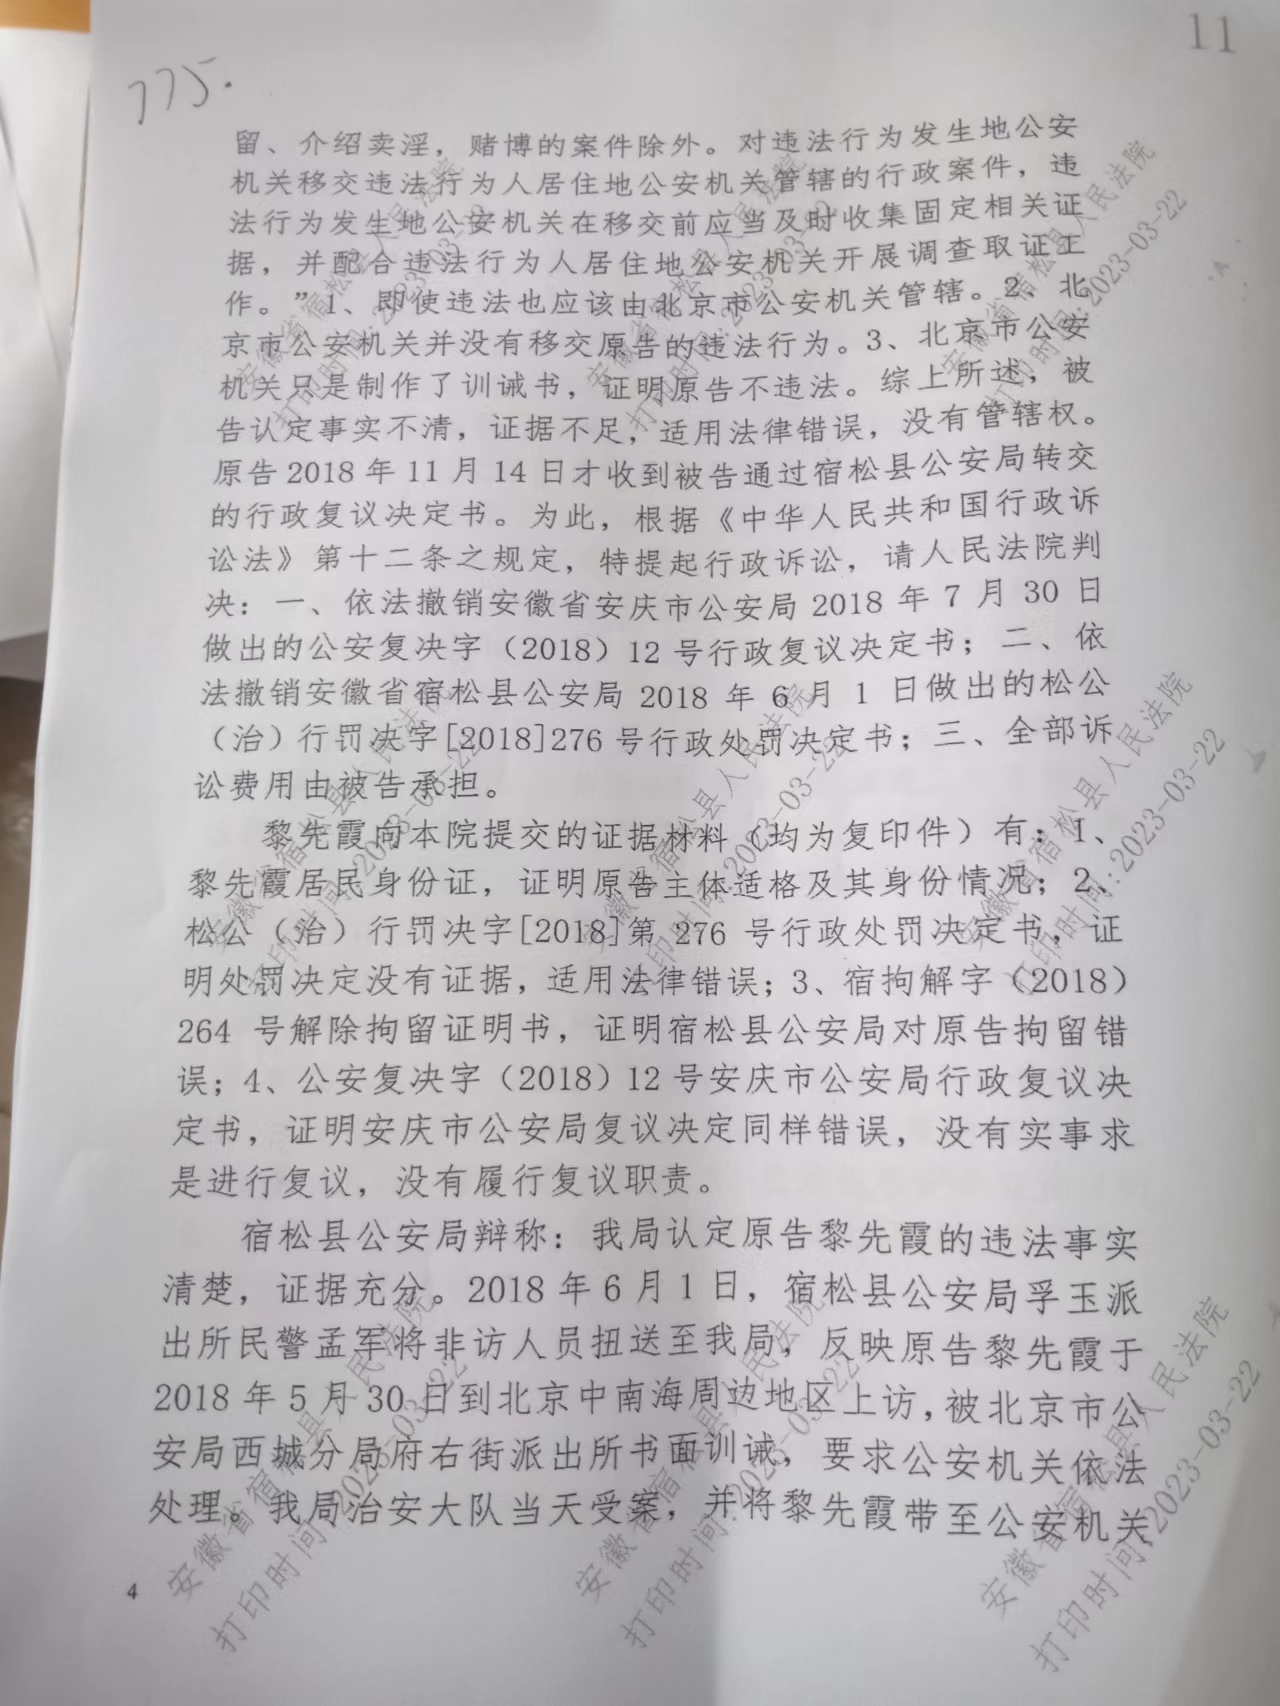 11
775.
留、介绍卖淫，赌博的案件除外。对违法行为发生地公安
机关移交违法行为人居住地公安机关管辖的行政案件，违
法行为发生地公安机关在移交前应当及时收集固定相关证
据，并配合违法行为人居住地公安机关开展调查取证工
作。”1、即使违法也应该由北京市公安机关管辖。2、北
京市公安机关并没有移交原告的违法行为。3、北京市公安
机关只是制作了训诫书，证明原告不违法。综上所述，被
告认定事实不清，证据不足，适用法律错误，没有管辖权。
原告2018年11月14日才收到被告通过宿松县公安局转交
的行政复议决定书。为此，根据《中华人民共和国行政诉
讼法》第十二条之规定，特提起行政诉讼，请人民法院判
决：一、依法撤销安徽省安庆市公安局2018年7月30日
做出的公安复决字（2018）12号行政复议决定书；二、依
法撤销安徽省宿松县公安局2018年6月1日做出的松公
（治）行罚决字[2018]276号行政处罚决定书；三、全部诉
讼费用由被告承担。
黎先霞向本院提交的证据材料（均为复印件）有：1、
黎先霞居民身份证，证明原告主体适格及其身份情况；2、
松公（治）行罚决字[2018]第276号行政处罚决定书，证
明处罚决定没有证据，适用法律错误；3、宿拘解字（2018）
264号解除拘留证明书，证明宿松县公安局对原告拘留错
误；4、公安复决字（2018）12号安庆市公安局行政复议决
定书，证明安庆市公安局复议决定同样错误，没有实事求
是进行复议，没有履行复议职责。
宿松县公安局辩称：我局认定原告黎先霞的违法事实
清楚，证据充分。2018年6月1日，宿松县公安局孚玉派
出所民警孟军将非访人员扭送至我局，反映原告黎先霞于
2018年5月30日到北京中南海周边地区上访，被北京市公
安局西城分局府右街派出所书面训诫，要求公安机关依法
处理。我局治安大队当天受案，并将黎先霞带至公安机关
4
安徽省宿松县人民法院
打印时间:2023-03-22
安徽省宿松县人民法院
打印时间:2023-03-22
安徽省宿松县人民法院
打印时间:2023-03-22
安徽省宿松县人民法院
打印时间:2023-03-22
安徽省宿松县人民法院
打印时间:2023-03-22
安徽省宿松县人民法院
打印时间:2023-03-22
安徽省宿松县人民法院
打印时间:2023-03-22
安徽省宿松县人民法院
打印时间:2023-03-22
安徽省宿松县人民法院
打印时间:2023-03-22